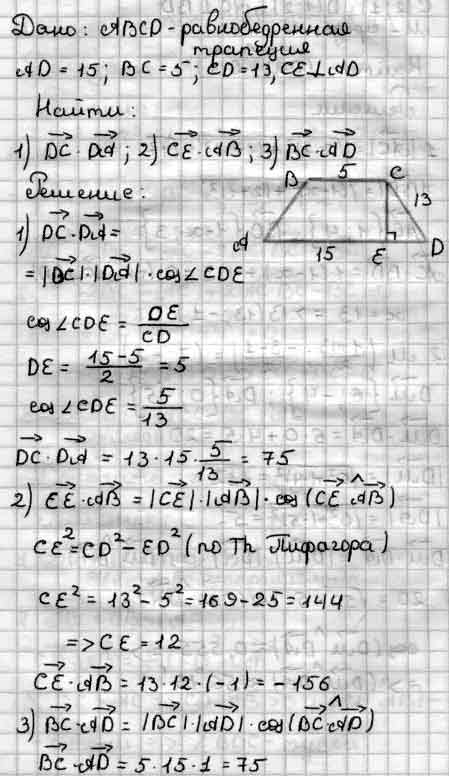 Дано: ABCD - равнобедренная
трапеция
AD = 15; BC = 5; CD = 13, CE ⊥ AD
Найти:
1) DC · DA; 2) CE · AB; 3) BC · AD
Решение:
B 5 C
13
A 15 E D
1) DC · DA =
= |DC| · |DA| · cos∠CDE
cos∠CDE = DE/CD
DE = (15-5)/2 = 5
cos∠CDE = 5/13
DC · DA = 13 · 15 · 5/13 = 75
2) CE · AB = |CE| · |AB| · cos(CE ^ AB)
CE² = CD² - ED² (по Th Пифагора)
CE² = 13² - 5² = 169 - 25 = 144
=> CE = 12
CE · AB = 13 · 12 · (-1) = -156
3) BC · AD = |BC| · |AD| · cos(BC ^ AD)
BC · AD = 5 · 15 · 1 = 75